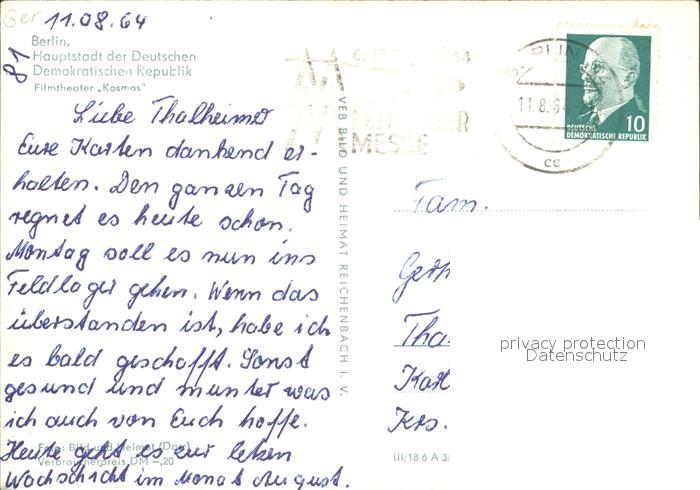 Ger
11.08.64
81
Berlin,
Hauptstadt der Deutschen
Demokratischen Republik
Filmtheater „Kosmos"
Liebe Thalheimer
Eure Karten dankend er-
halten. Den ganzen Tag
regnet es heute schon.
Montag soll es nun ins
Feldlager gehen. Wenn das
überstanden ist, habe ich
es bald geschafft. Sonst
gesund und munter was
ich auch von Euch hoffe.
Heute geht es zur letzten
Wachschicht im Monat August.
Foto: Bild und Heimat (Darr)
Verbraucherpreis DM -,20
VEB BILD UND HEIMAT REICHENBACH I. V.
MESSE
11.8.64
CC
DEUTSCHE
DEMOKRATISCHE REPUBLIK
10
Fam.
Krs.
III/18 6 A 3/
privacy protection
Datenschutz